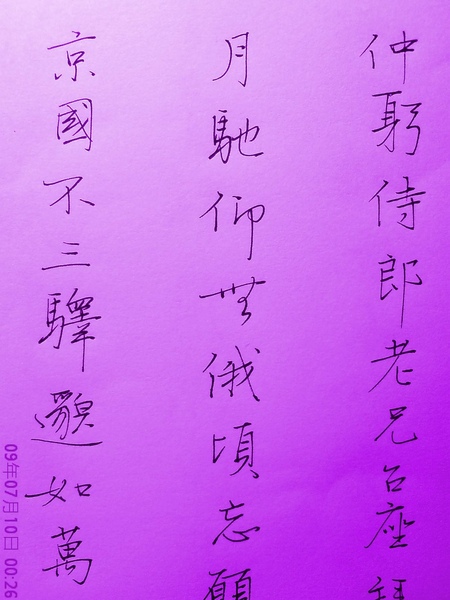 仲躬侍郎老兄台座拜
月馳仰無俄頃忘願
京國不三驛邈如萬
09年07月10日 00:26